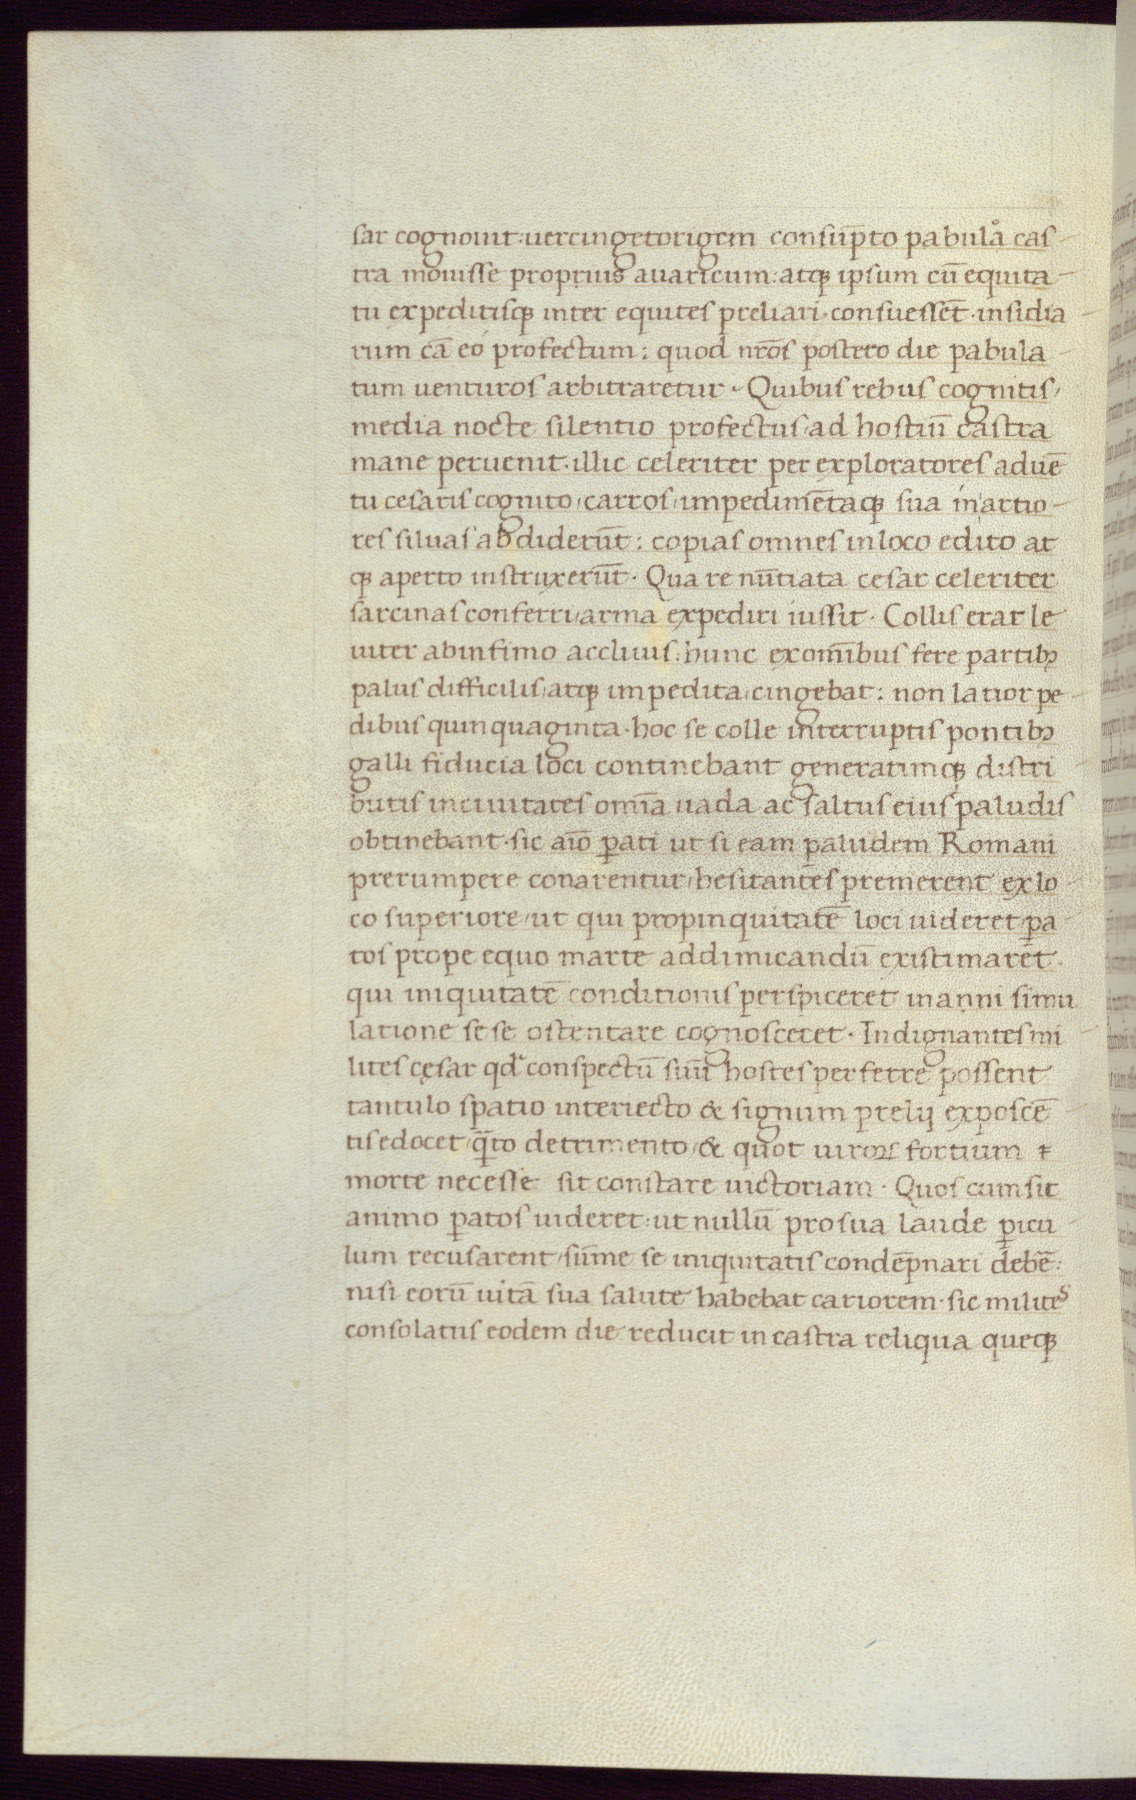 sar cognouit: uercingetorigem consūpto pabulå cas
tra mouisse proprius auaricum: atqꝫ ipsum cū equita
tu expeditisqꝫ inter equites preliari consuessēt insidia
rum cā eó profectum: quod nr̄os postero die pabula
tum venturos arbitraretur. Quibus rebus cognitis
media nocte silentio profectus ad hostiū castra
mane peruenit. illic celeriter per exploratores aduē
tu cesaris cognito, carros, impedimētaqꝫ sua in artio
res siluas abdiderūt: copias omnes in loco edito at
qꝫ aperto instruxerūt. Qua re nūtiata cesar celeriter
sarcinas conferri, arma expediri iussit. Collis erat le
uiter abinfimo accliuis: hunc ex om̄ibus fere partibꝫ
palus difficilis, atqꝫ impedita, cingebat: non latior pe
dibus quinquaginta. hoc se colle interruptis pontibꝫ
galli fiducia loci continebant generatimqꝫ distri
butis in ciuitates om̄ia uada ac saltus eius paludis
obtinebant. sic aīo ꝑati ut si eam paludem Romani
prerumpere conarentur, hesitantes premerent ex lo
co superiore, ut qui propinquitatē loci uideret ꝑa
tos prope equo marte addimicandū existimaret.
qui iniquitatē conditionis perspiceret inanni simu
latione sese ostentare cognosceret. Indignantes mi
lites cęsar qd̓ conspectū suū hostes perferre possent
tantulo spatio interiecto & signum prelij exposcē
tis edocet q̄to detrimento, & quot uiroꝝ fortium ⁊
morte necesse sit constare uictoriam. Quos cum sit
animo ꝑatos uideret: ut nullū pro sua laude ꝑicu
lum recusarent, sūme se iniquitatis condēpnari debē:
nisi eorū uitā sua salute habebat cariorem. sic milites
consolatus eodem die reducit in castra reliqua queqꝫ